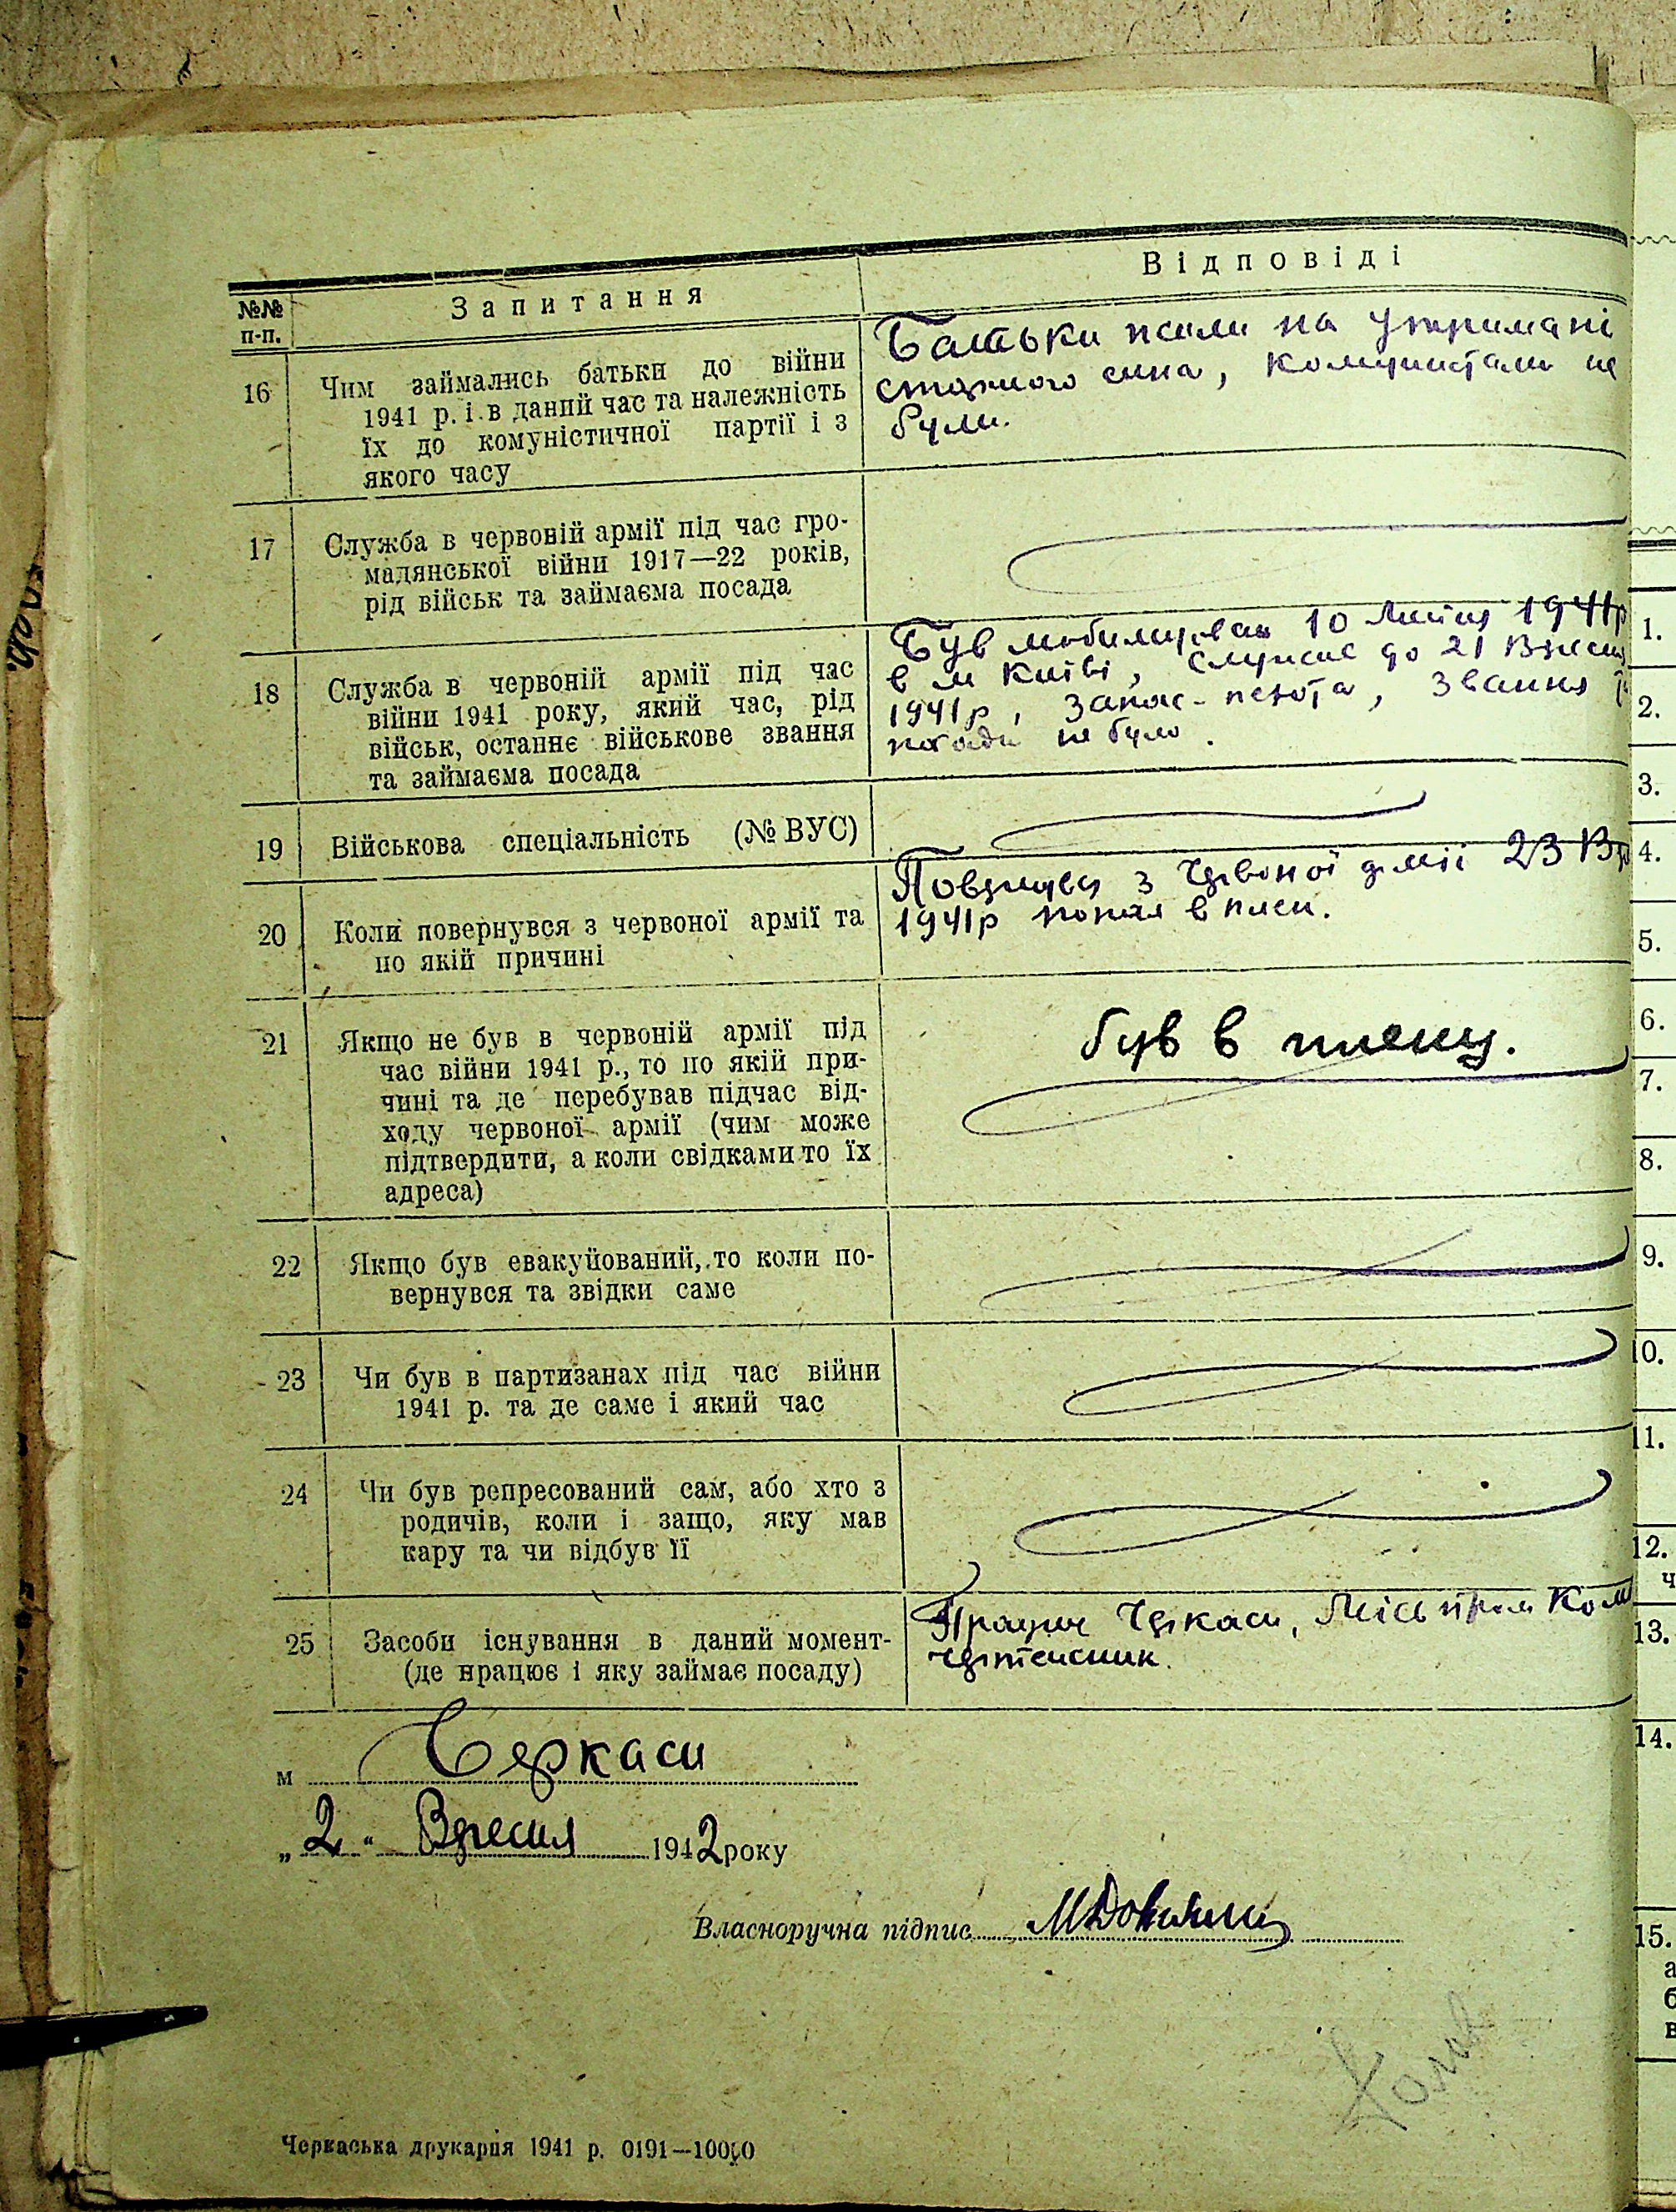 №№ п-п.
Запитання
Відповіді
16
Чим займались батьки до війни
1941 р. і в даний час та належність
їх до комуністичної партії і з
якого часу
Батьки жили на утримані
старшого сина, комуністами не
були.
17
Служба в червоній армії під час гро-
мадянської війни 1917—22 років,
рід військ та займаєма посада
18
Служба в червоній армії під час
війни 1941 року, який час, рід
військ, останнє військове звання
та займаєма посада
Був мобилизован 10 Липня 1941р
в м Київі, служив до 21 Вересня
1941р, запас-пехота, звання
посади не було.
19
Військова спеціальність (№ ВУС)
20
Коли повернувся з червоної армії та
по якій причині
Повернувся з Червоної армії 23 Вер
1941р попал в плен.
21
Якщо не був в червоній армії під
час війни 1941 р., то по якій при-
чині та де перебував підчас від-
ходу червоної армії (чим може
підтвердити, а коли свідками то їх
адреса)
був в плену.
22
Якщо був евакуйований, то коли по-
вернувся та звідки саме
23
Чи був в партизанах під час війни
1941 р. та де саме і який час
24
Чи був репресований сам, або хто з
родичів, коли і защо, яку мав
кару та чи відбув її
25
Засоби існування в даний момент-
(де працює і яку займає посаду)
Працюю Черкаси, Міськпром Ком
чертежник.
м Черкаси
„2“ Вересня 1942 року
Власноручна підпис
Черкаська друкарня 1941 р. 0191—10000
1.
2.
3.
4.
5.
6.
7.
8.
9.
10.
11.
12.
ч
13.
14.
15.
а
б
в